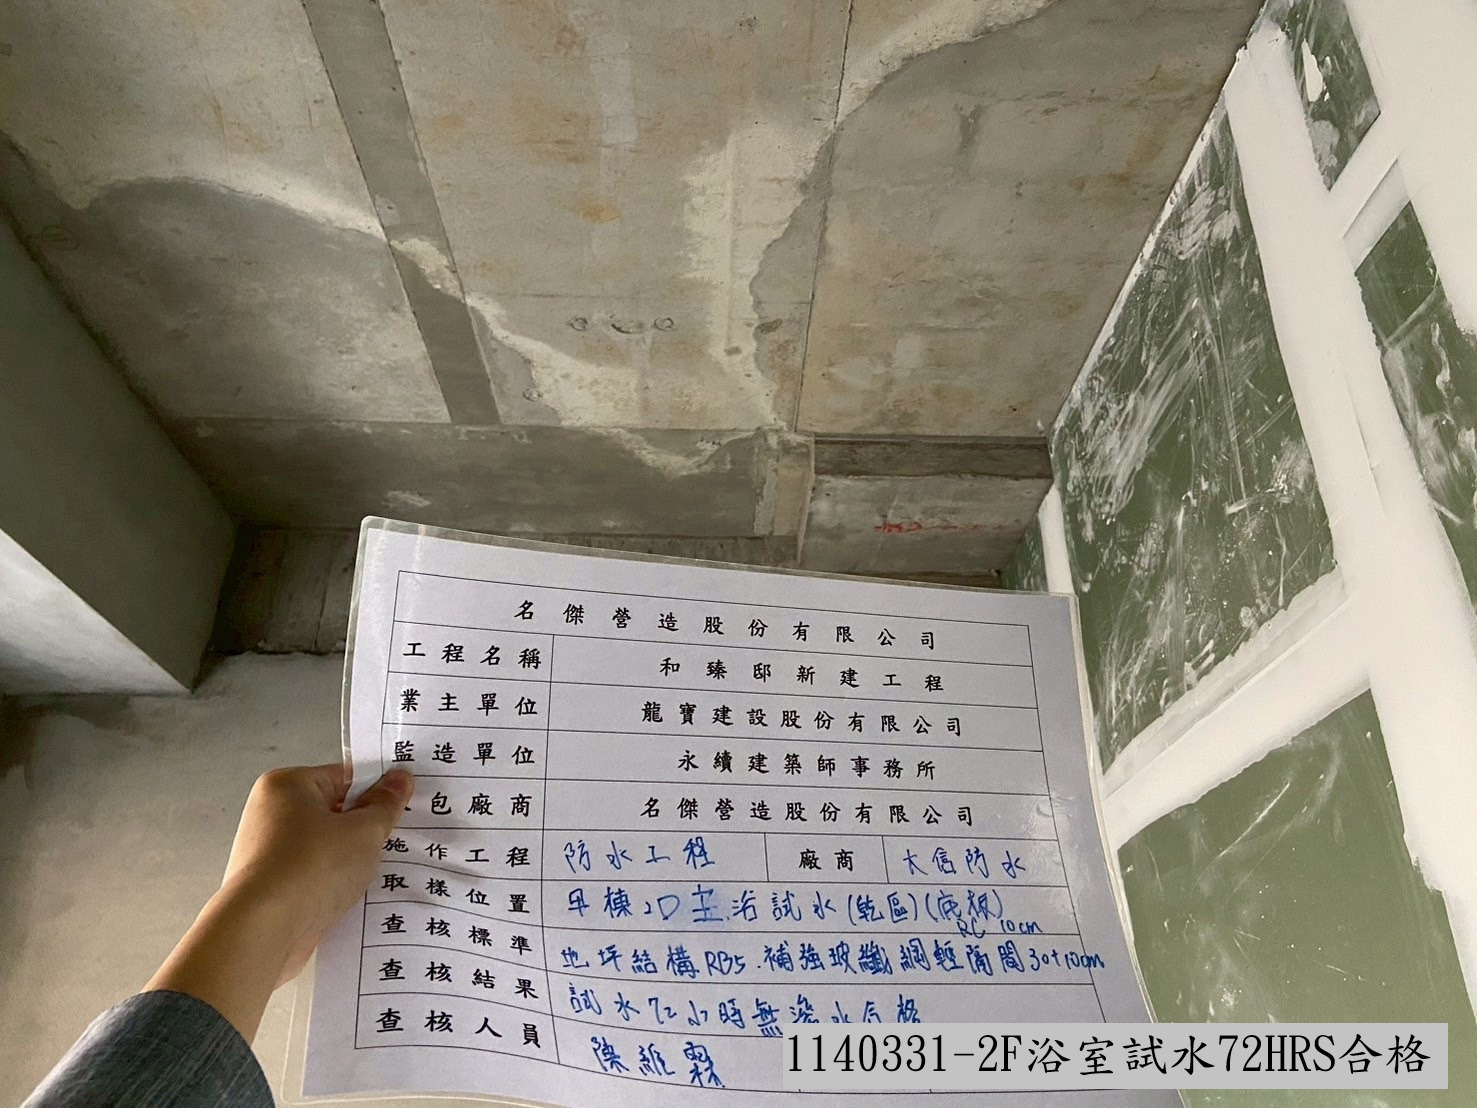 名傑營造股份有限公司
工程名稱 和臻邸新建工程
業主單位 龍寶建設股份有限公司
監造單位 永續建築師事務所
包廠商 名傑營造股份有限公司
施作工程 防水工程 廠商 大信防水
取樣位置 棟2D主浴試水(乾區)(底板)
RC 10cm
查核標準 地坪結構RB5.補強玻纖網輕隔間30+10cm
查核結果 試水72小時無滲水合格
查核人員 陳維霖
1140331-2F浴室試水72HRS合格